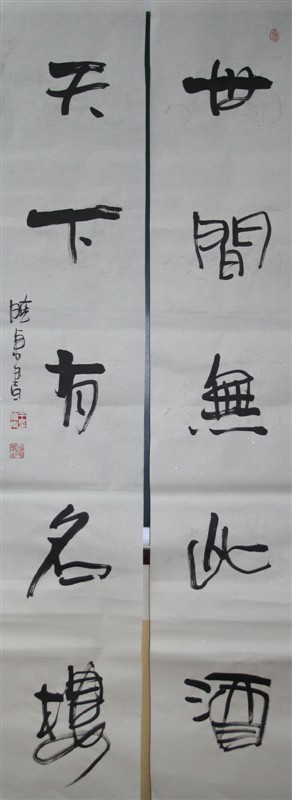 世間無此酒
天下有名樓